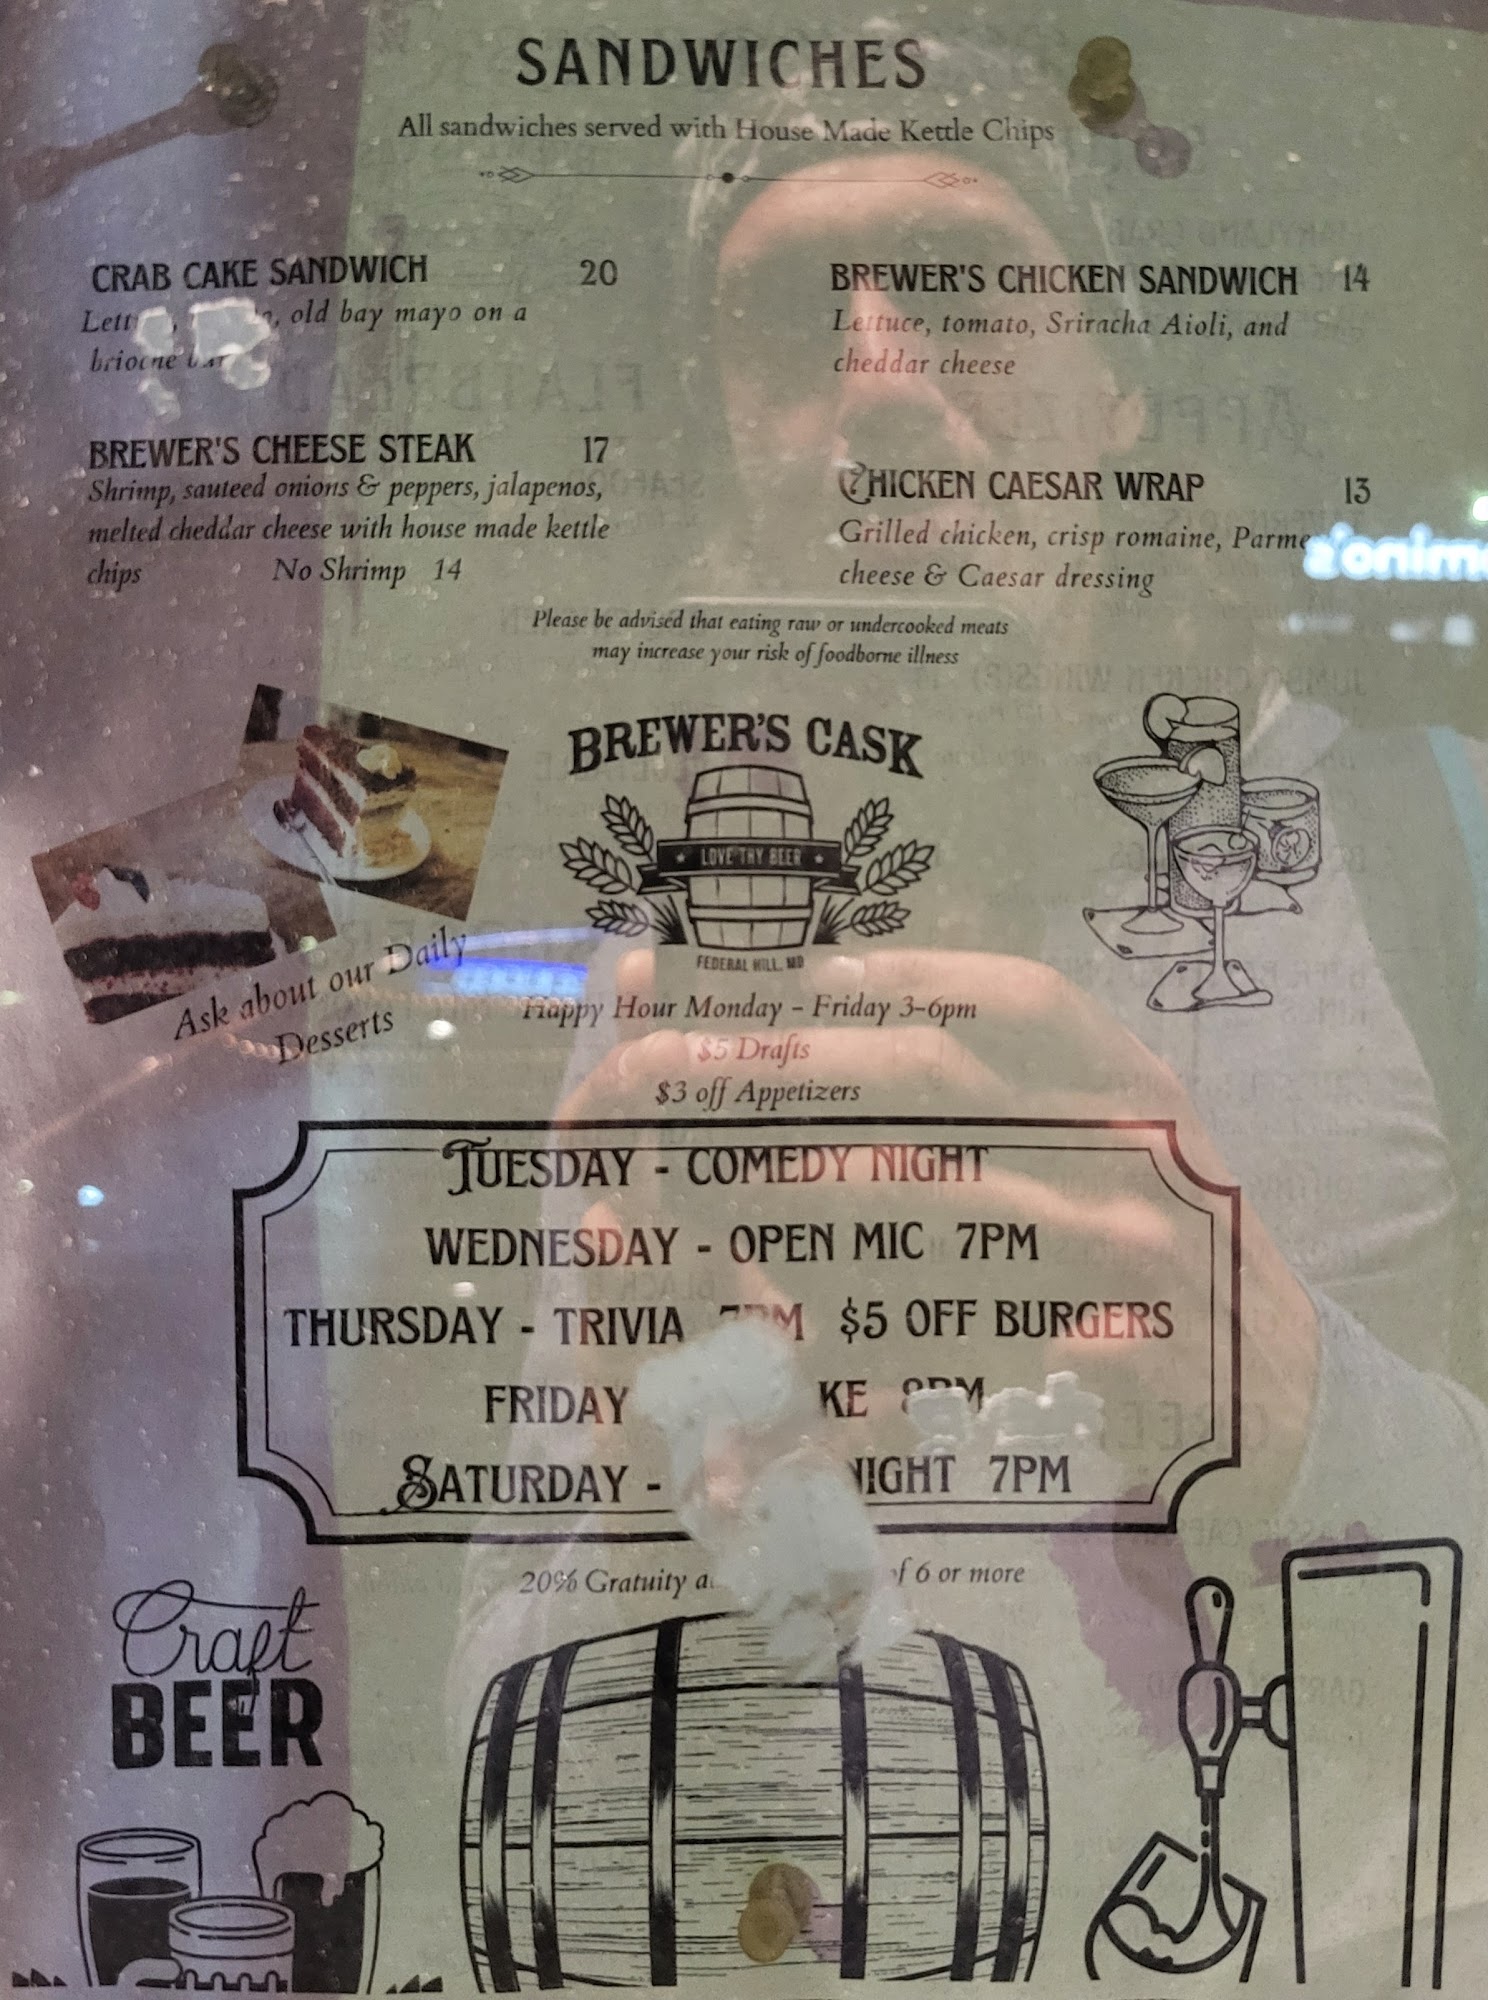 SANDWICHES
All sandwiches served with House Made Kettle Chips
CRAB CAKE SANDWICH 20
old bay mayo on a
brioche
BREWER'S CHEESE STEAK 17
Shrimp, sauteed onions & peppers, jalapenos,
melted cheddar cheese with house made kettle
chips No Shrimp 14
BREWER'S CHICKEN SANDWICH 14
Lettuce, tomato, Sriracha Aioli, and
cheddar cheese
CHICKEN CAESAR WRAP 13
Grilled chicken, crisp romaine,
cheese & Caesar dressing
Please be advised that eating raw or undercooked meats
may increase your risk of foodborne illness
BREWER'S CASK
LOVE THY BEER
FEDERAL HILL, MD
Ask about our Daily
Desserts
Happy Hour Monday - Friday 3-6pm
$5 Drafts
$3 off Appetizers
TUESDAY - COMEDY NIGHT
WEDNESDAY - OPEN MIC 7PM
THURSDAY - TRIVIA 7PM $5 OFF BURGERS
FRIDAY 8PM
SATURDAY - NIGHT 7PM
20% Gratuity of 6 or more
Craft
BEER